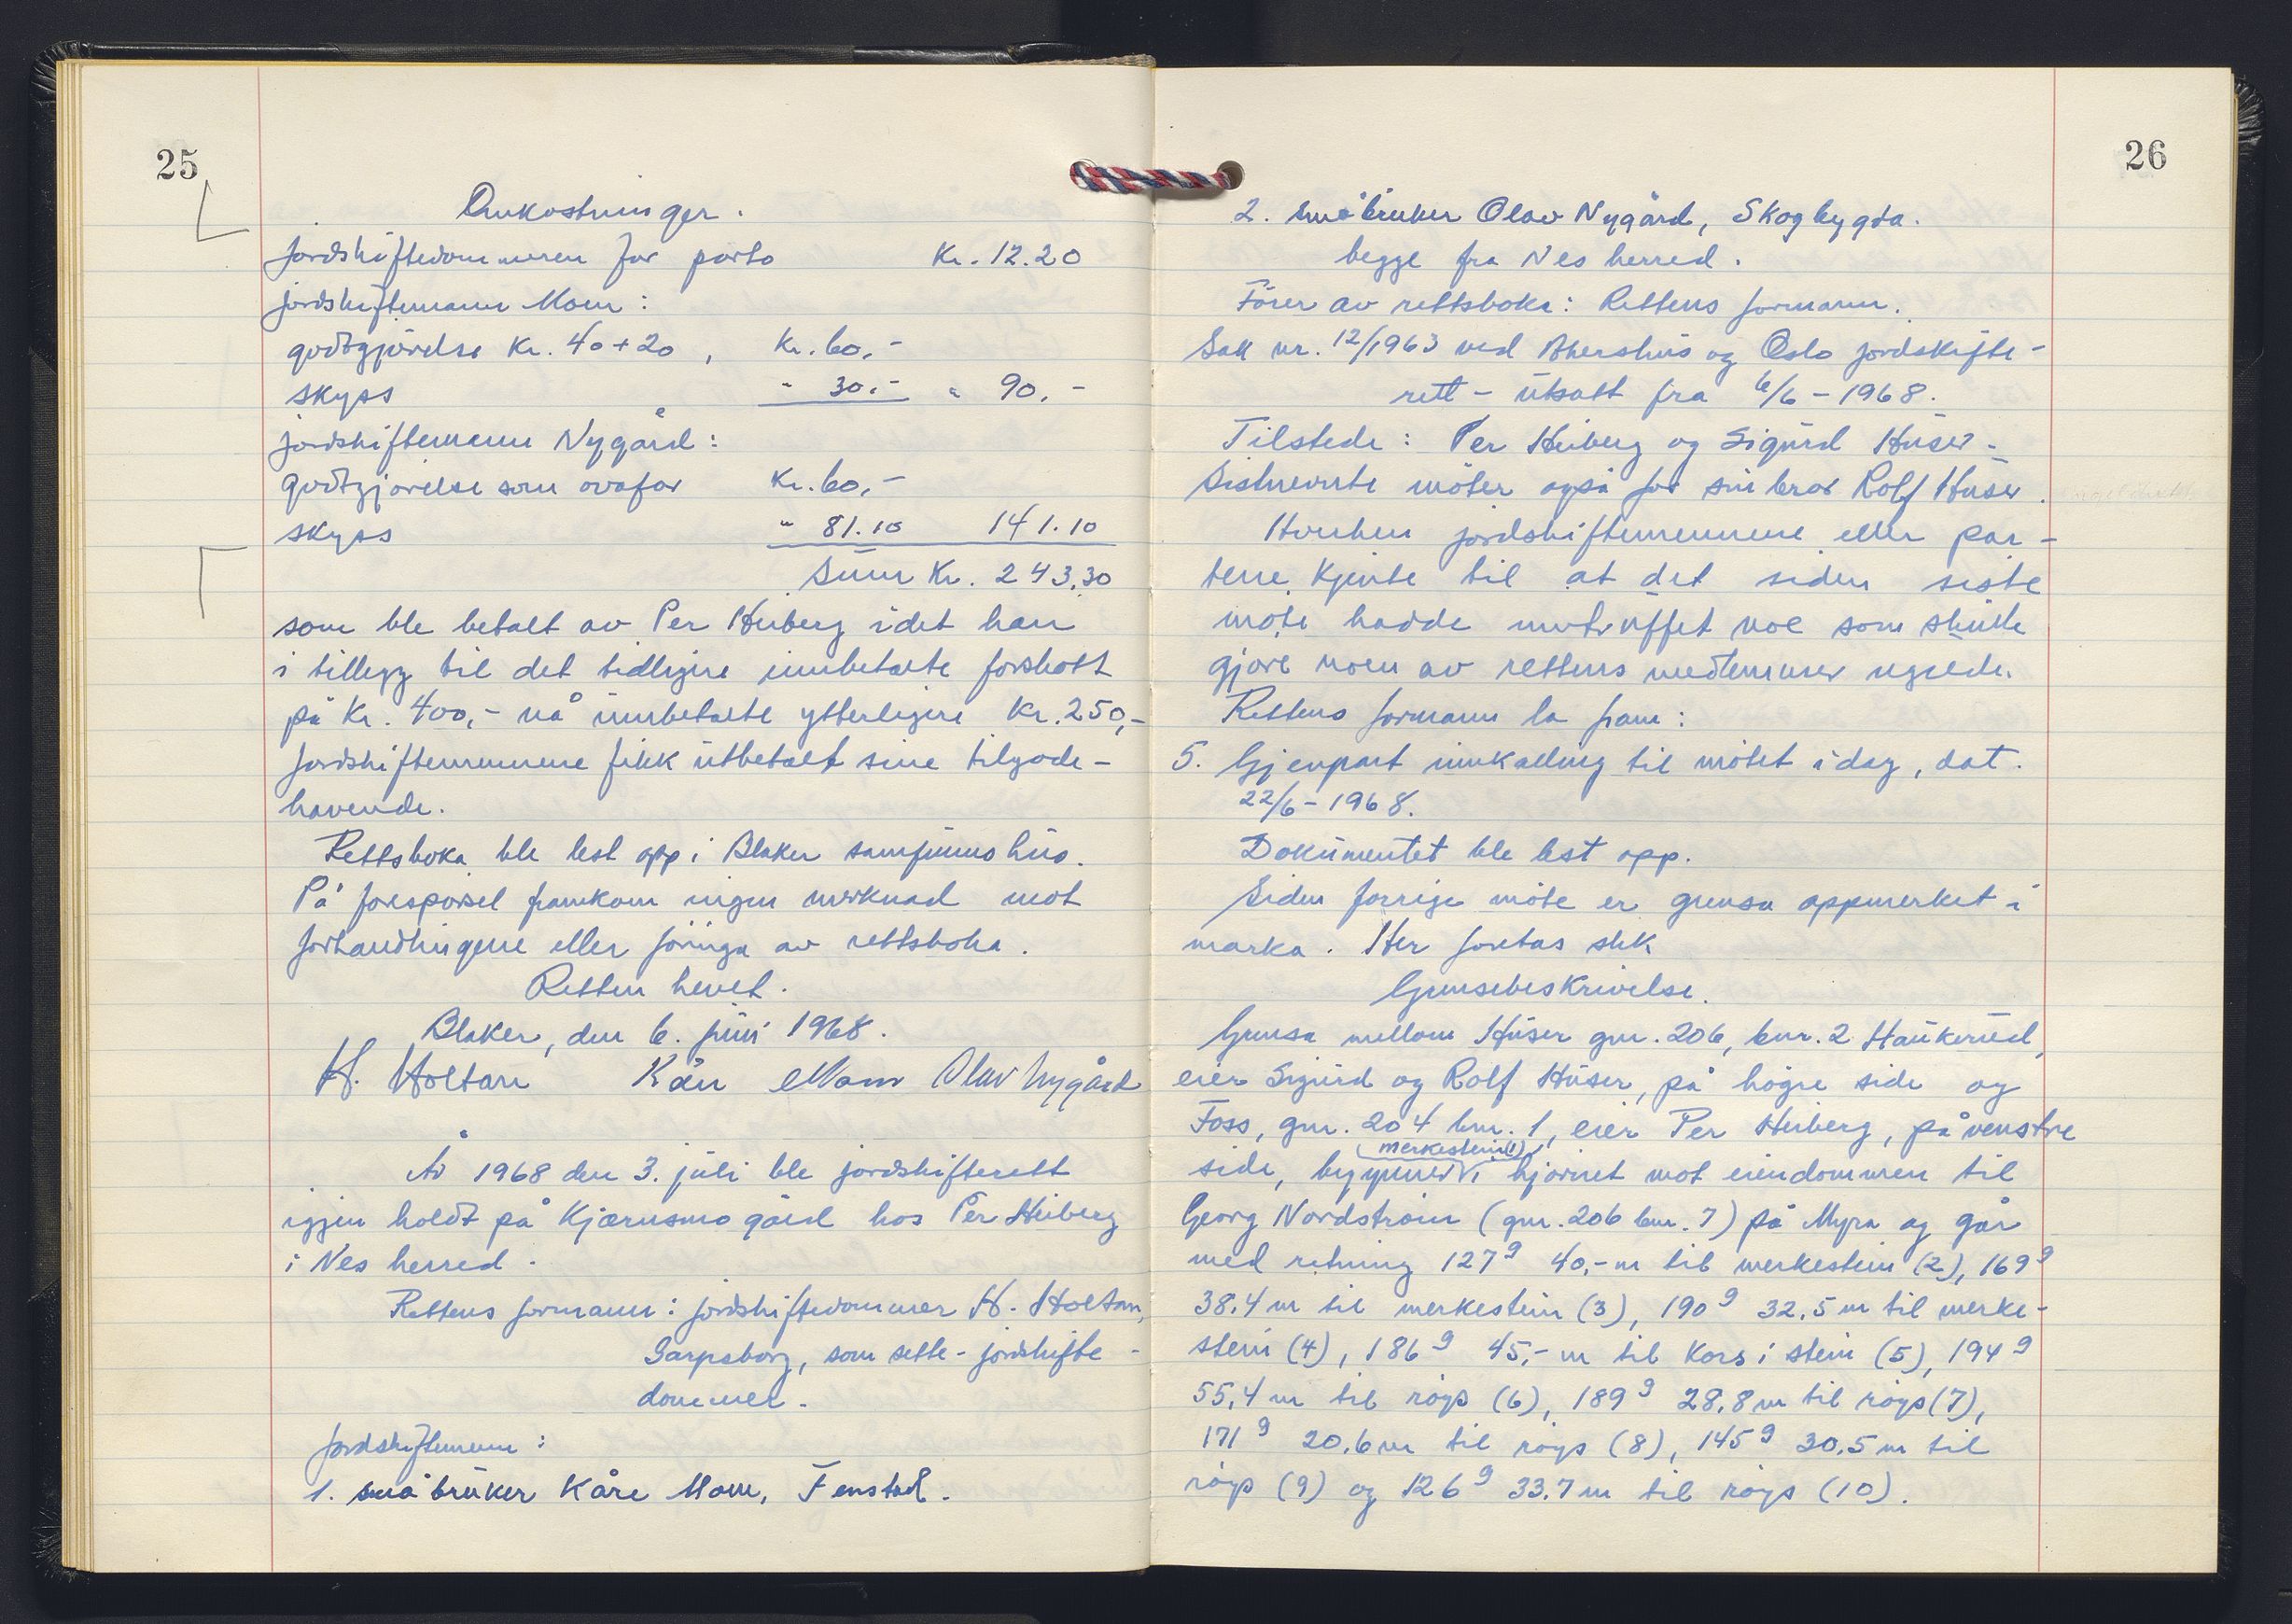 25
Omkostninger.
Jordskiftedommeren for porto Kr. 12.20
jordskiftemann Mom:
godtgjörelse Kr. 40+20, Kr. 60,-
skyss " 30.- " 90.-
jordskiftemann Nygård:
godtgjörelse som ovafor Kr. 60,-
skyss " 81.10 141.10
Sum Kr. 243,30
som ble betalt av Per Heiberg idet han
i tillegg til det tidligere innbetalte forskott
på Kr. 400,- nå innbetalte ytterligere Kr. 250,-
Jordskiftemennene fikk utbetalt sine tilgode-
havende.
Rettsboka ble lest opp i Blaker samfunnshus.
På forespörsel framkom ingen merknad mot
forhandlingene eller föringa av rettsboka.
Retten hevet.
Blaker, den 6. juni 1968.
H. Holtan Kåre Mom Olav Nygård
År 1968 den 3. juli ble jordskifterett
igjen holdt på Kjærnsmo gård hos Per Heiberg
i Nes herred.
Rettens formann: jordskiftedommer H. Holtan,
Sarpsborg, som sette-jordskifte-
dommer.
Jordskiftemenn:
1. småbruker Kåre Mom, Fenstad.
26
2. småbruker Olav Nygård, Skogbygda.
begge fra Nes herred.
Förer av rettsboka: Rettens formann.
Sak nr. 12/1963 ved Akershus og Oslo jordskifte-
rett - utsatt fra 6/6-1968.
Tilstede: Per Heiberg og Sigurd Huser.
Sistnevnte möter også for sin bror Rolf Huser.
Hverken jordskiftemennene eller par-
tene kjente til at det siden siste
möte hadde inntruffet noe som skulle
gjöre noen av rettens medlemmer ugilde.
Rettens formann la fram:
5. Gjenpart innkalling til mötet idag, dat.
22/6-1968.
Dokumentet ble lest opp.
Siden forrige möte er grensa oppmerket i
marka. Her foretas slik
Grensebeskrivelse.
Grensa mellom Huser gnr. 206, bnr. 2 Haukerud,
eier Sigurd og Rolf Huser, på högre side og
Foss, gnr. 204 bnr. 1, eier Per Heiberg, på venstre
merkestein (1)
side, begynner i hjörnet mot eiendommen til
Georg Nordström (gnr. 206 bnr. 7) på Myra og går
med retning 127g 40,- m til merkestein (2), 169g
38.4 m til merkestein (3), 190g 32.5 m til merke-
stein (4), 186g 45,- m til kors i stein (5), 194g
55,4 m til röys (6), 189g 28.8 m til röys (7),
171g 20.6 m til röys (8), 145g 30.5 m til
röys (9) og 126g 33.7 m til röys (10).